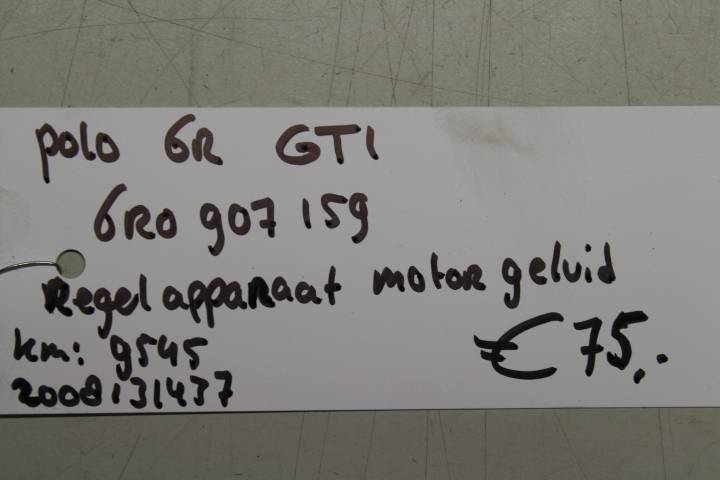 polo 6R GTI
6R0 907 159
Regelapparaat motorgeluid
€75,..
km: 9545
2008131437